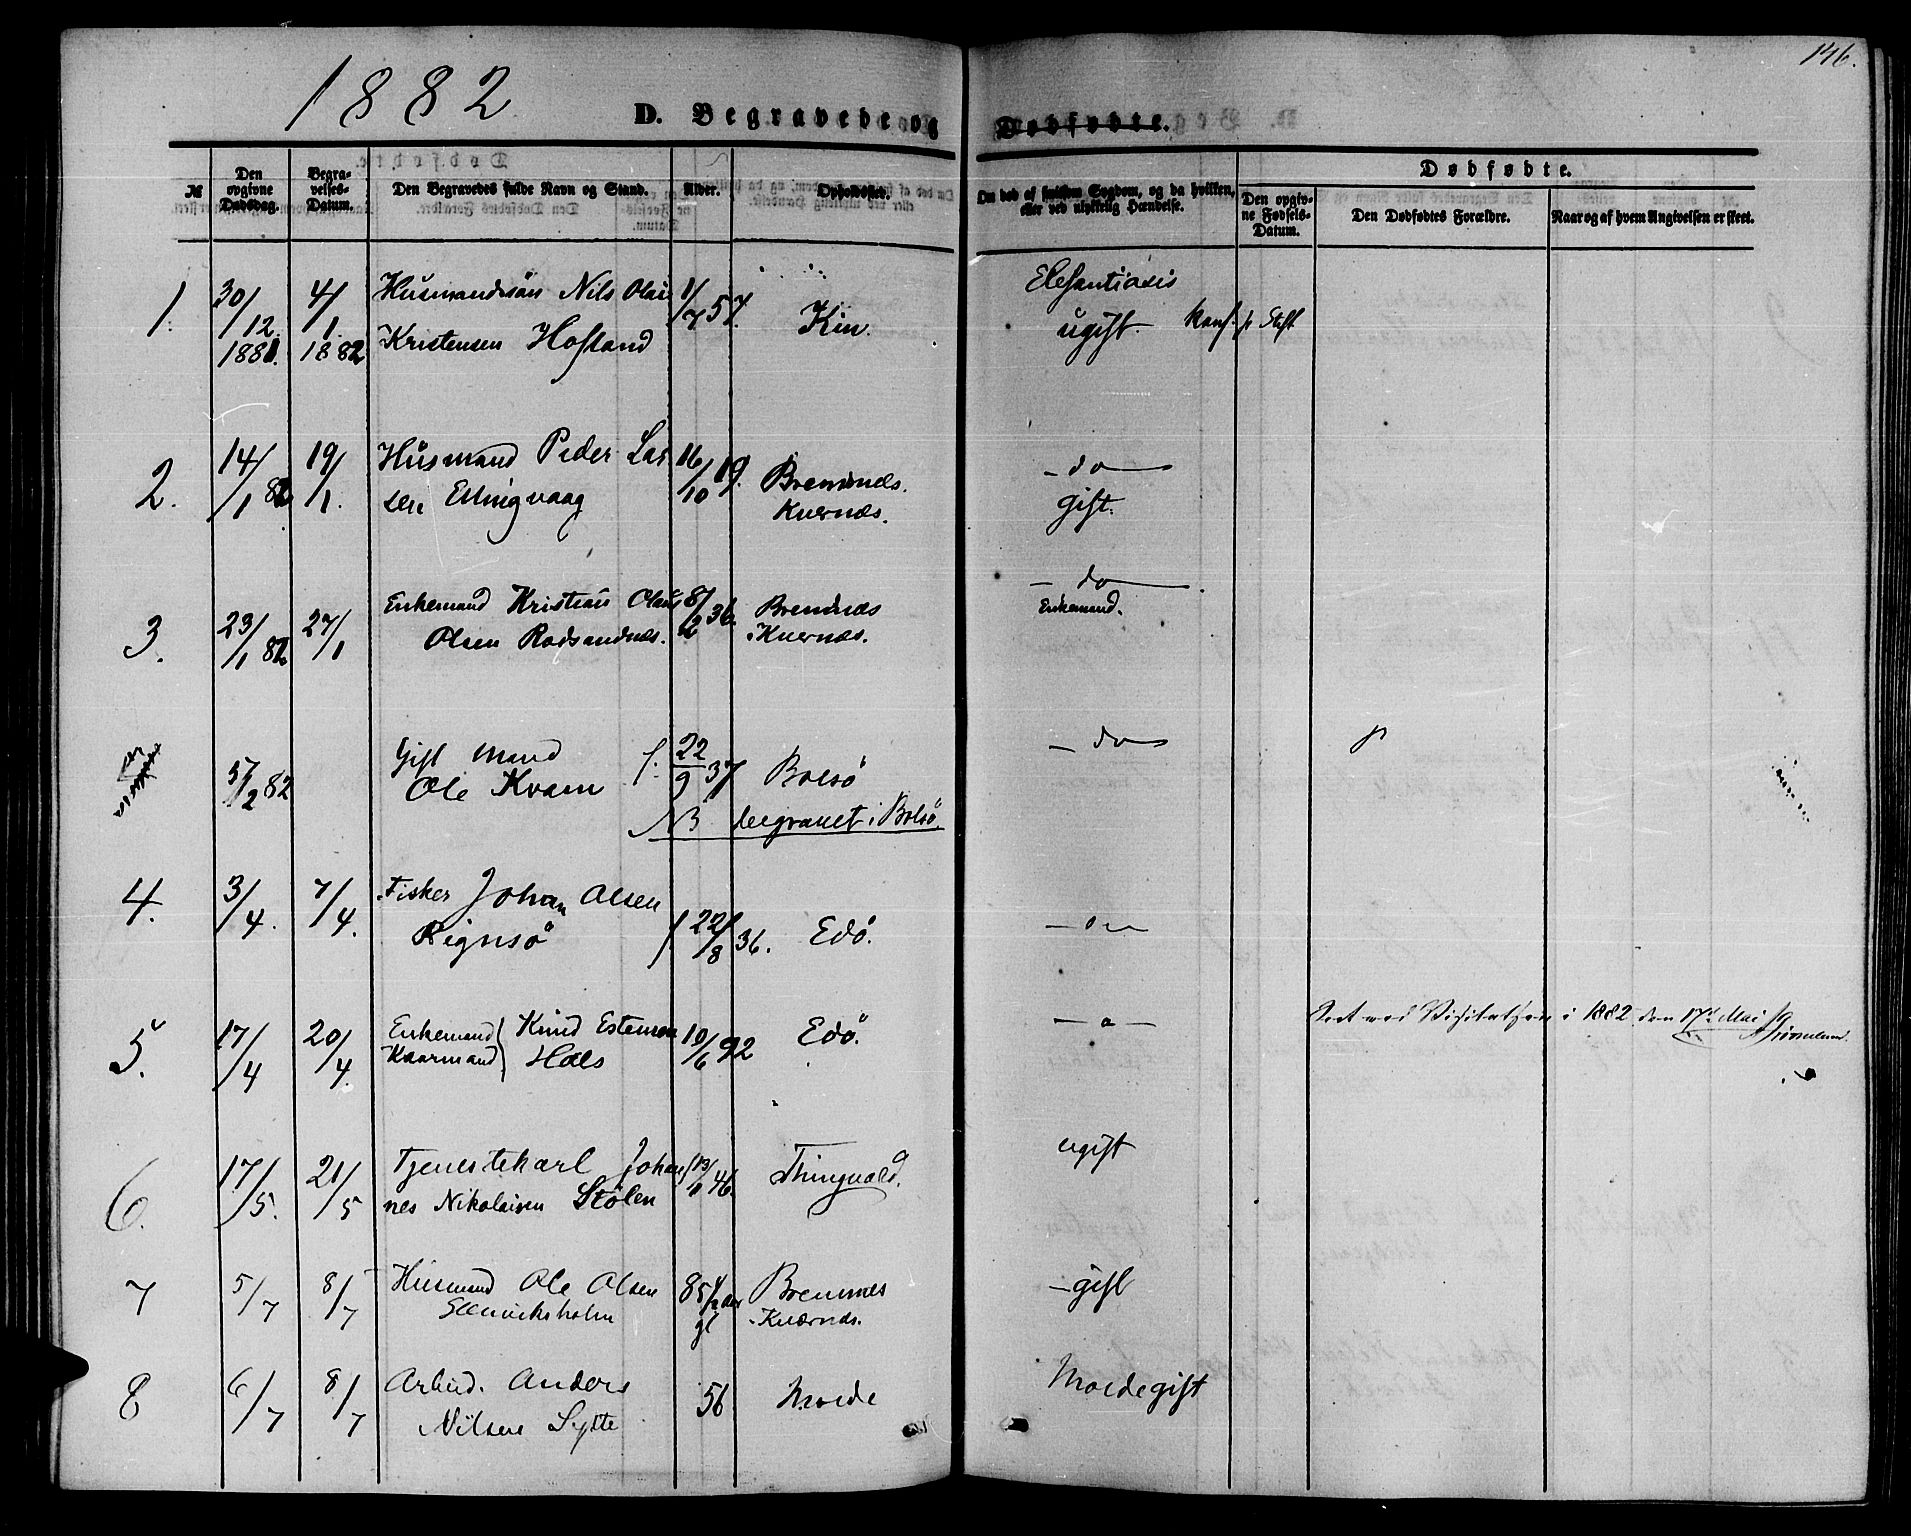 146.
1882
D. Begravede og Dødfødte.
№
Den opgivne Dødsdag.
Begravelses-Datum.
Den Begravedes fulde Navn og Stand.
Alder.
Opholdssted.
Om død af hvilken Sygdom, og da hvilken, eller ved ulykkelig Hændelse.
Dødfødte.
Den opgivne Fødsels-Datum.
Den Dødfødtes Forældre.
Naar og af hvem Angivelsen er skeet.
1. 30/12 1881. 4/1 1882 Husmandssön Nils Olai 1/7 57. Kin. Elefantiasis
Kristensen Hofland ugift.
2. 14/1 82 19/1. Husmand Peder Lar 16/10 19. Bremnæs. - do -
sen Ellingvaag Kvernæs. gift.
3. 23/1 82 27/1 Enkemand Kristian Olaus 8/2 36. Bremnæs - do -
Olsen Rodsandnæs. i Kvernæs. Enkemand.
5/2 82 Gift Mand f. 22/9 37 Bolsö - do
Ole Kvam
NB begravet i Bolsö.
4. 3/4. 7/4. Fisker Johan Olsen
Rignsö f 22/8 36. Edö.
5. 17/4 20/4. Enkemand Kaarmand Knud Estensen 10/6 92 Edö. - o -
Hals
i 1882 den 17de Mai
6. 17/5. 21/5 Tjenestekarl Johan 46. Thingvold. ugift
nes Nikolaisen Stölen
7 5/7 8/7 Husmand Ole Olsen 85 gl Bremnes - gift
Kværnæs.
8 6/7 8/7 Arbeid. Anders 56 Molde Molde gift
Nilsen Sylte